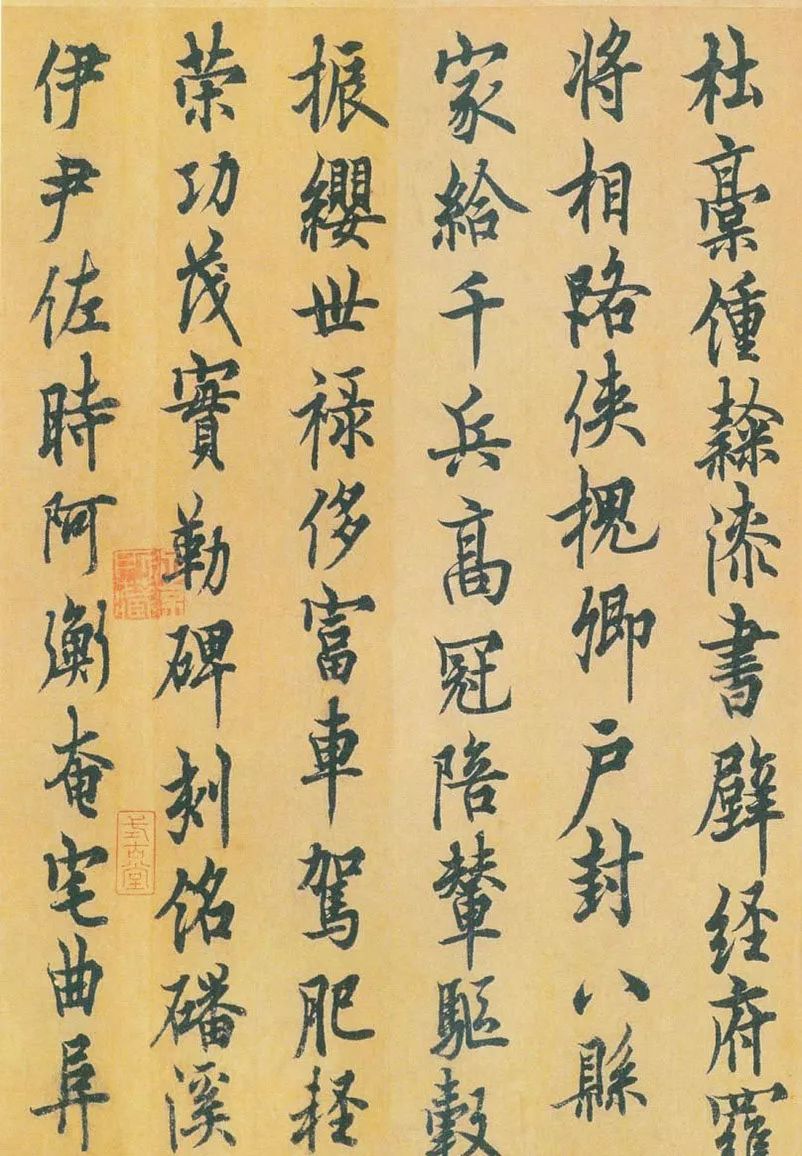 杜稾鍾隸漆書壁経府羅
将相路侠槐卿户封八縣
家給千兵高冠陪輦驅轂
振纓世禄侈富車駕肥軽
荣功茂實勒碑刻銘磻溪
伊尹佐時阿衡奄宅曲阜
式古堂